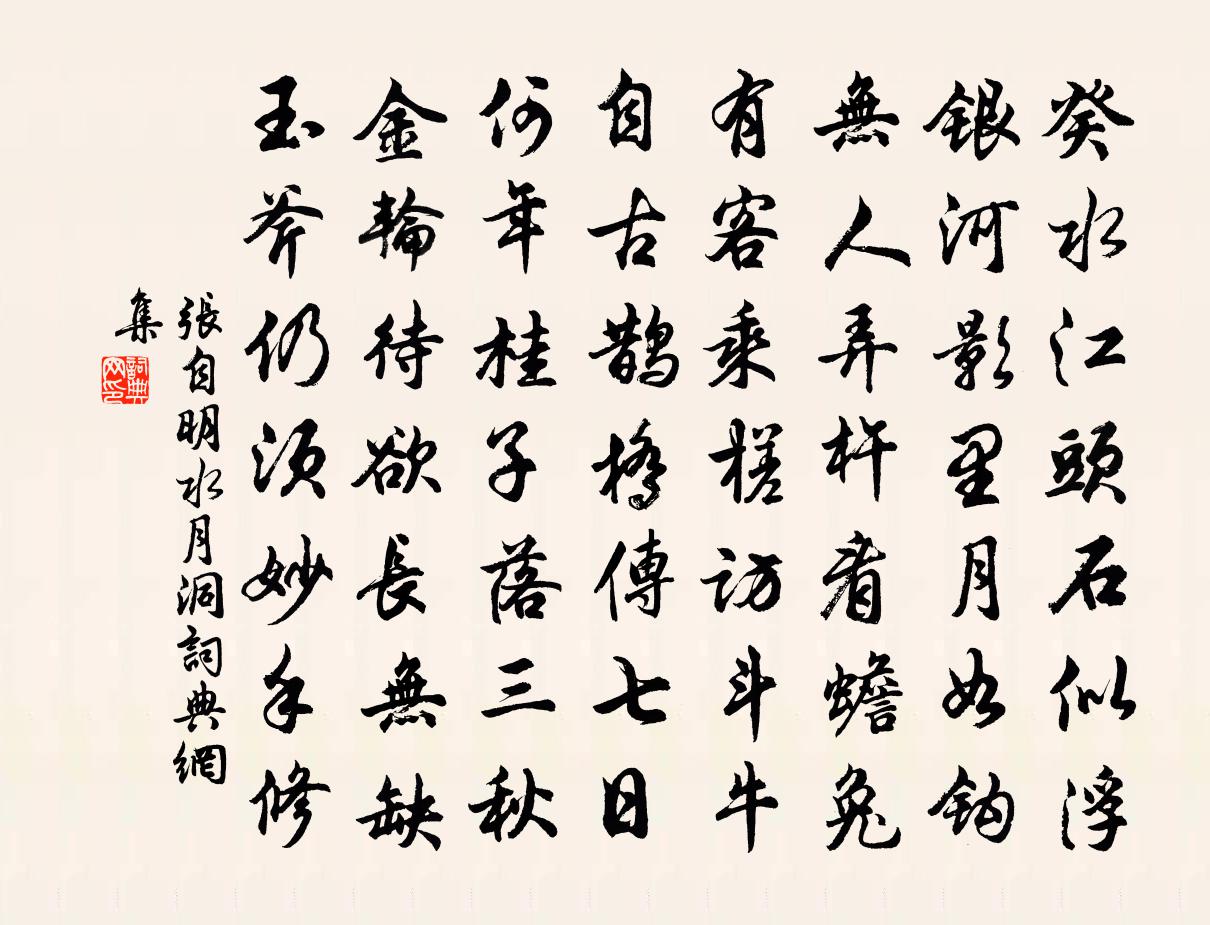 癸水江頭石似浮
銀河影里月如鈎
無人弄杵看蟾兔
有客乘槎訪斗牛
自古鵲橋傳七日
何年桂子落三秋
金輪待欲長無缺
玉斧仍須妙手修
張自明水月洞詞典網
集
詞典网印